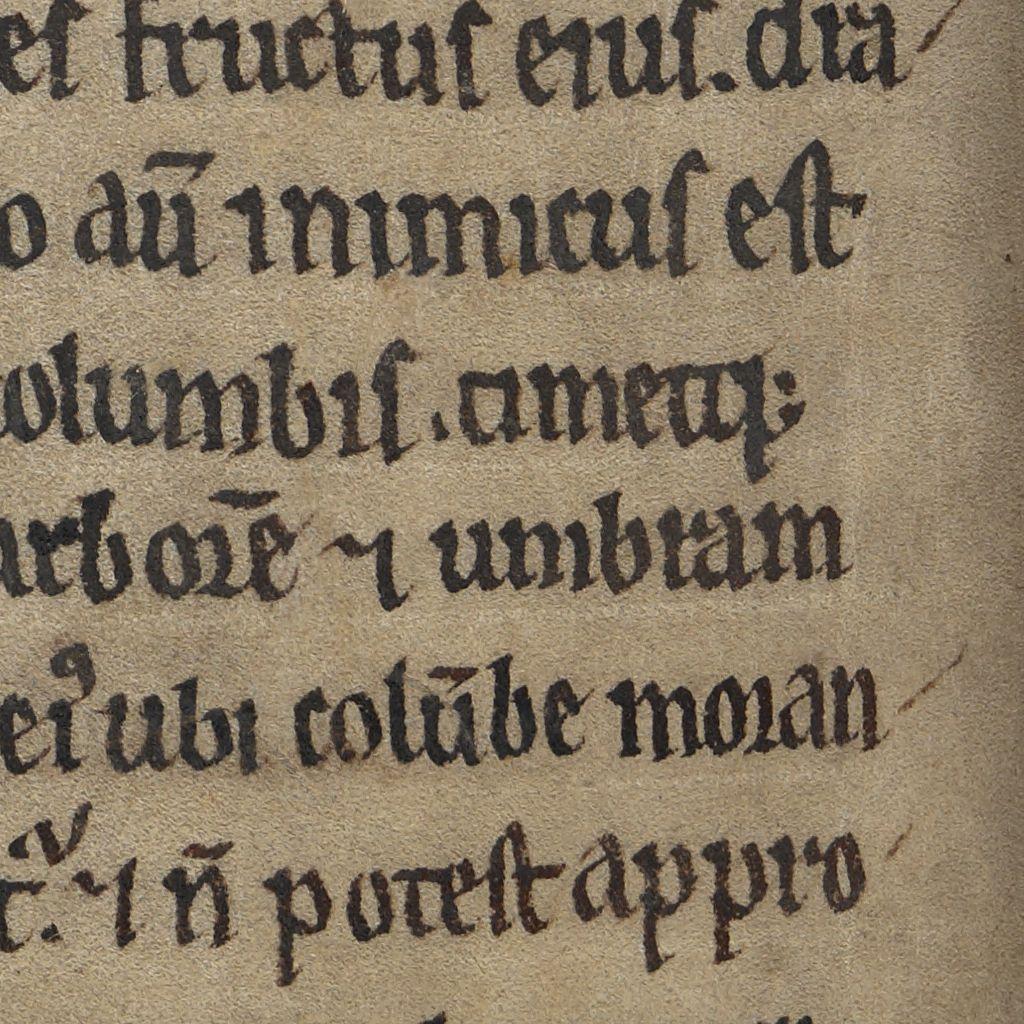 es fructus eius. dra
o aū inimicus est
olumbis. timetq;
arborē ⁊ umbram
eiꝰ ubi colūbe moran
t᷑. ⁊ n̄ potest appro